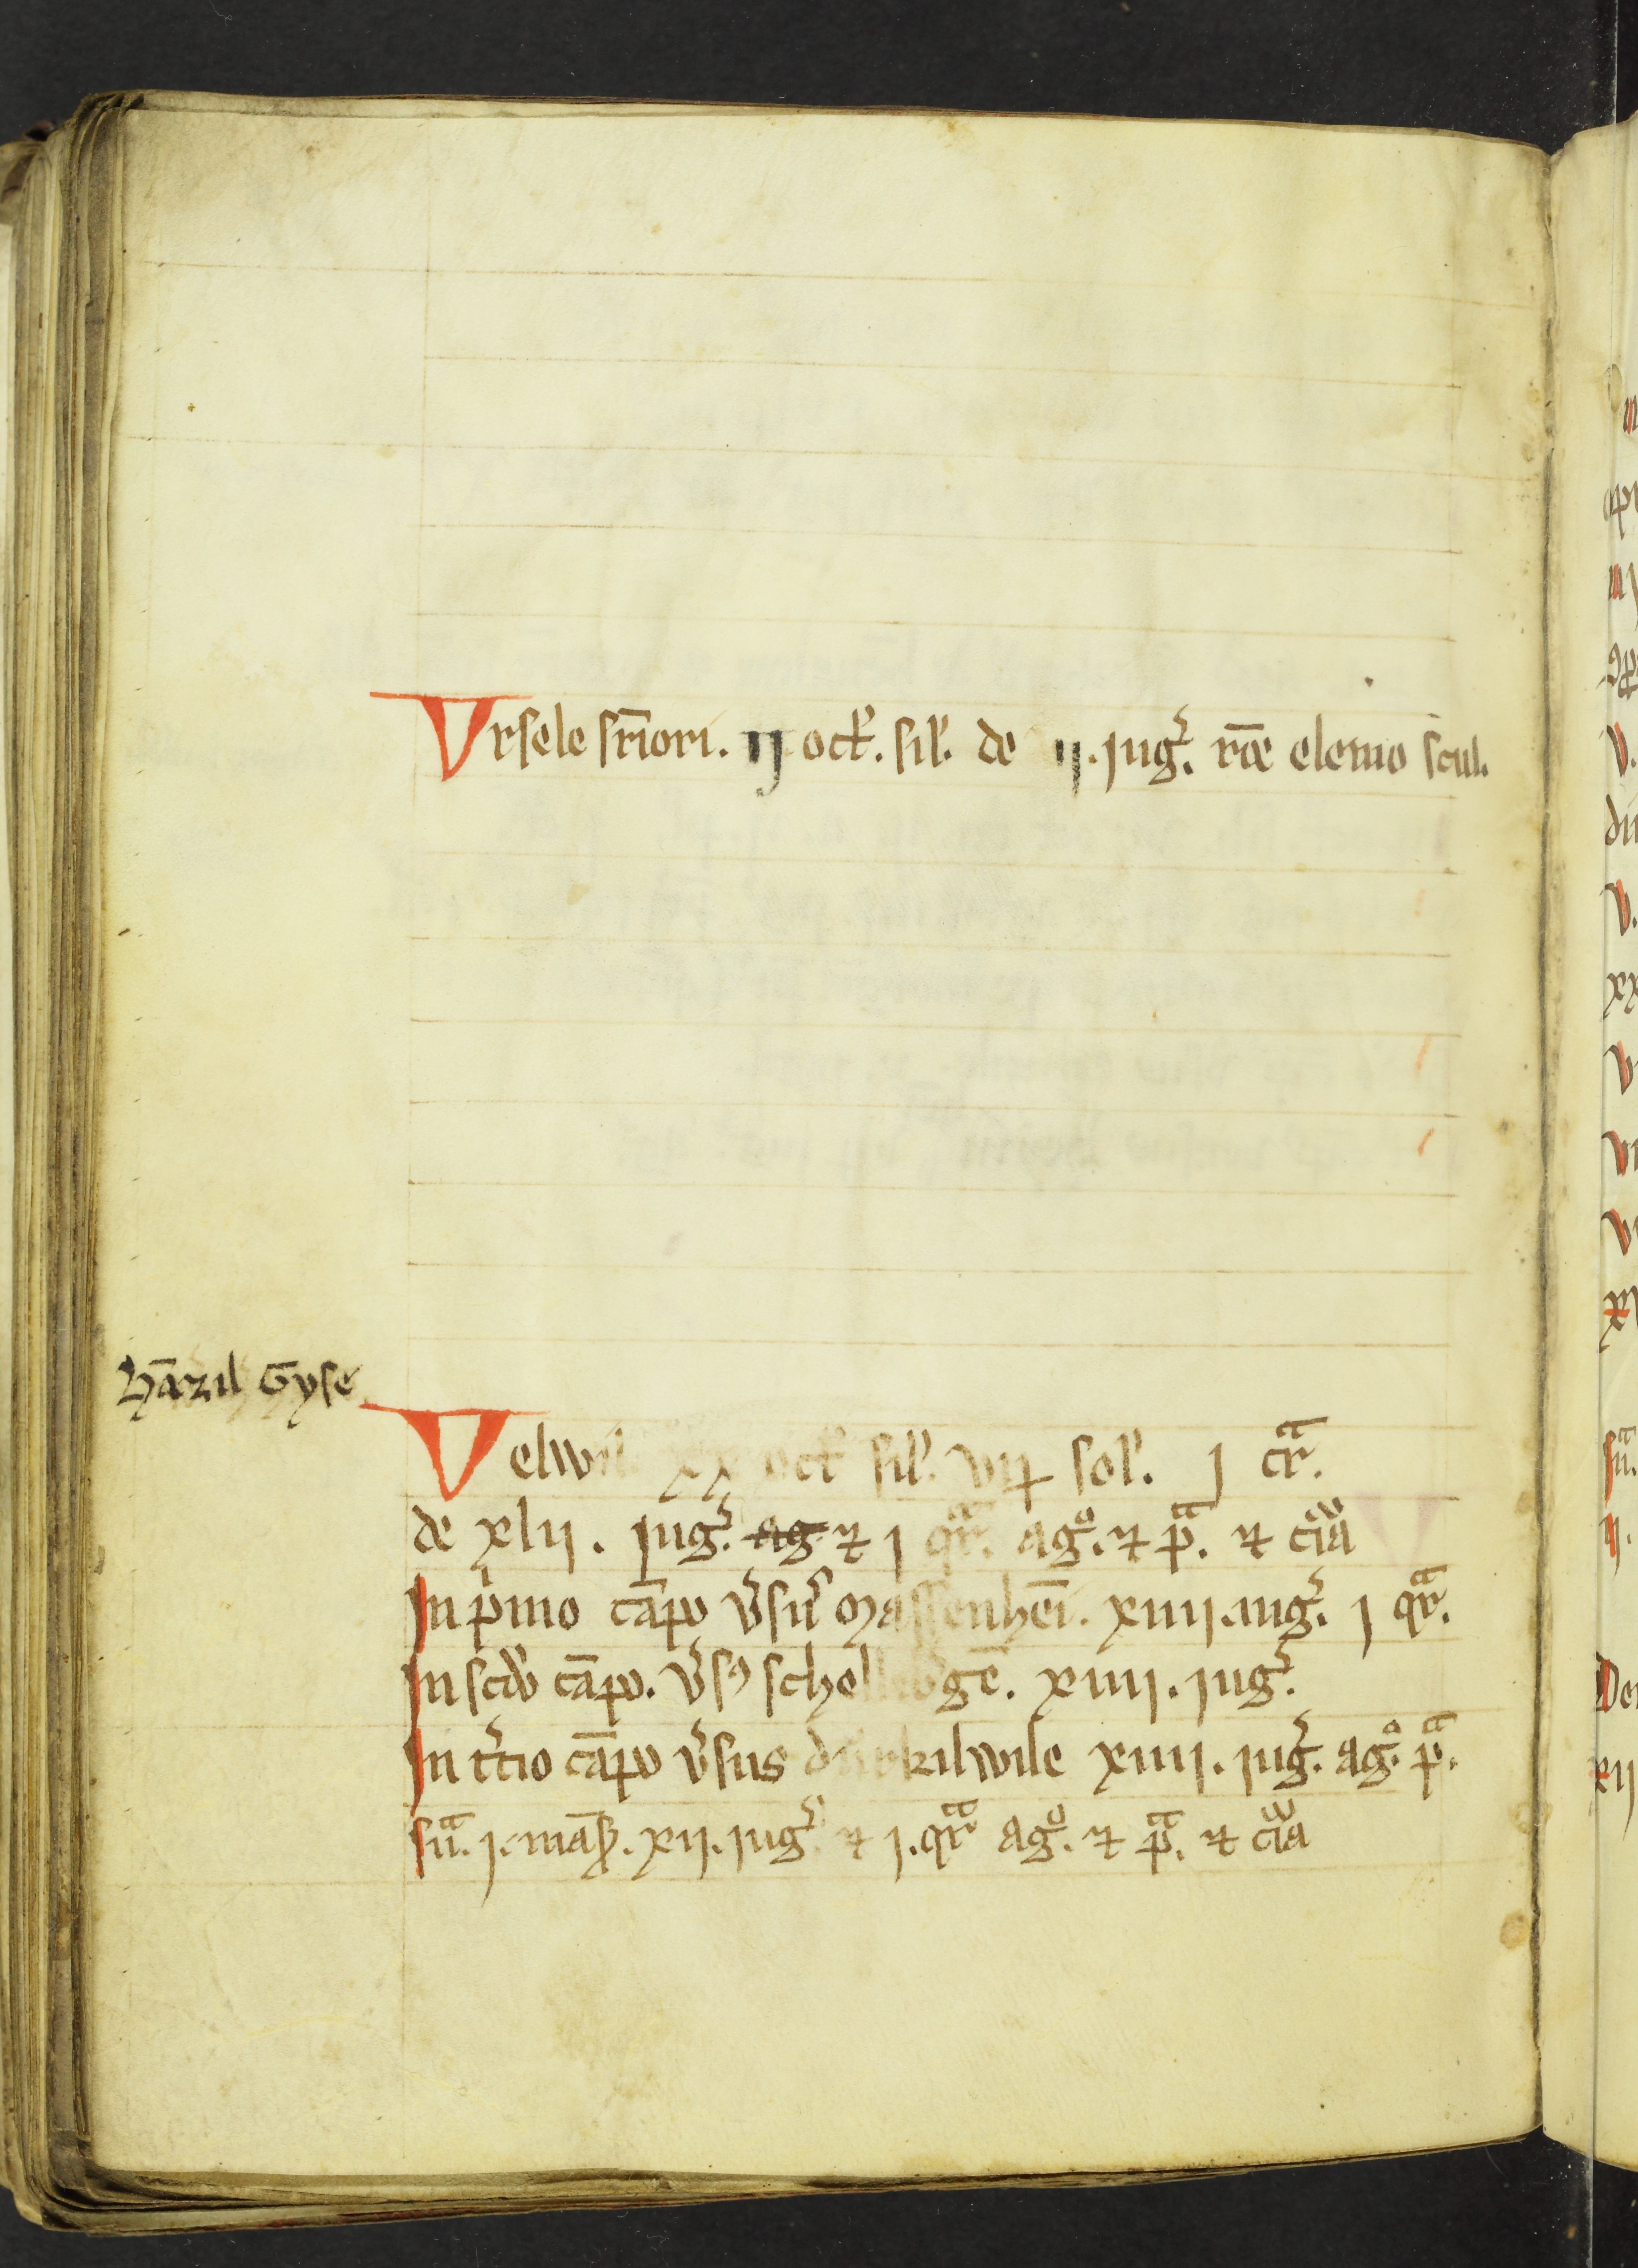 Vrsele sr̄iori. ij oct̓. sil̓. de ij. iug᷒. rōe elemo scul.
Hāzil Gyse
Velwil xx oct̓ sil̓. vij sol̓. j cᷓr.
de xlij. iug᷒. ag ⁊ j qᷓr. agͦ. ⁊ pᷓ. ⁊
In pͥmo cāpo v̓su᷒ Massenheī. xiiij. iug᷒. j qᷓr.
In scdo cāpo. v̓sꝰ schel gē. xiiij. iug᷒.
In t̓tio cāpo v̓sus durkilwile xiiij. iug᷒. agͦ. pᷓ.
suᷓ. j. māsꝫ. xij. iug᷒ ⁊ j. qᷓr agͦ. ⁊ pᷓ. ⁊